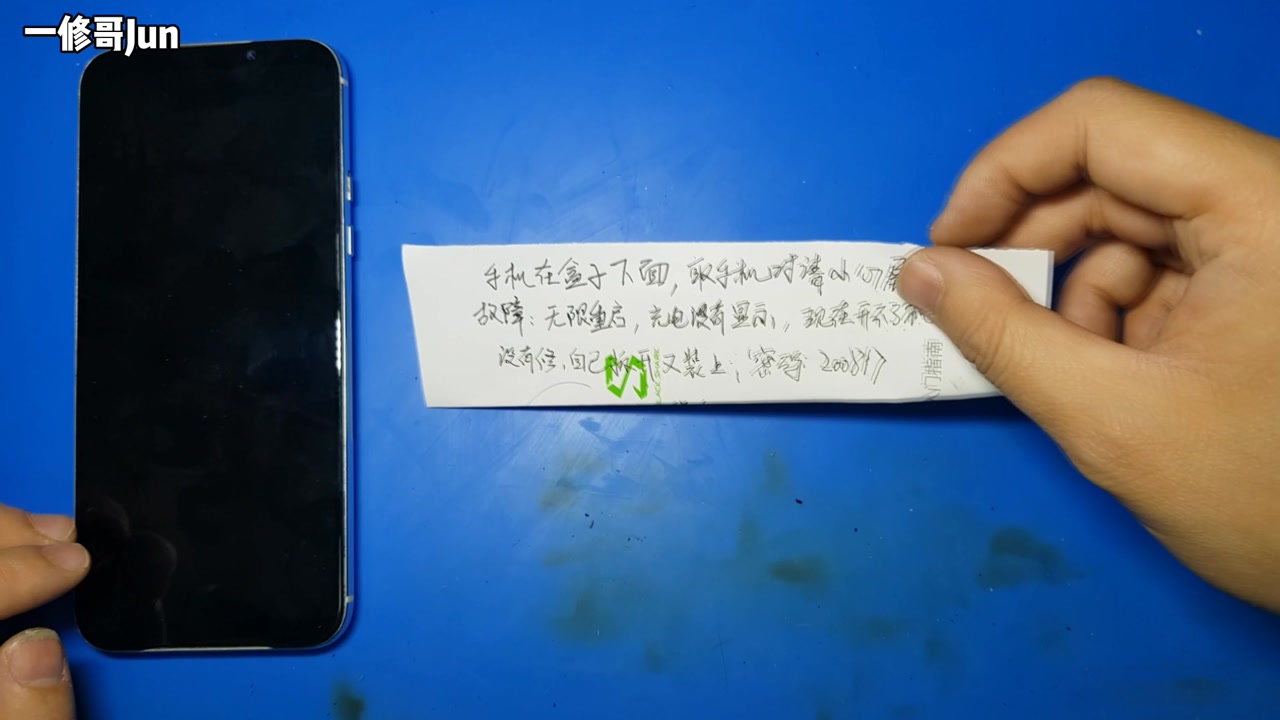 一修哥Jun
手机在盒子下面，取手机时请小心屏
故障：无限重启，充电没有显示，现在开不了
没有信，自己拆开又装上，密码
S
门指南